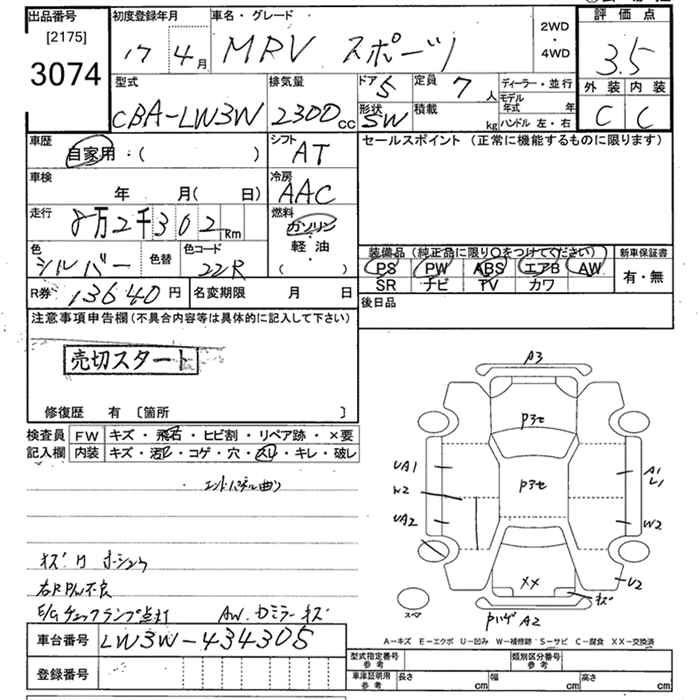 出品番号 初度登録年月 車名・グレード 評価点
[2175] 2WD
3074 17 4月 MRV スポーツ ・ 3.5
4WD
型式 排気量 ドア 5 定員 7人 ディーラー・並行 外装 内装
CBA-LW3W 2300cc 形状 SW 積載 kg モデル年式 年 C C
ハンドル 左・右
車歴 自家用・( ) シフト AT セールスポイント (正常に機能するものに限ります)
車検 年 月( 日) 冷房 AAC
走行 8万2千302Km 燃料 ガソリン
軽・油
( ・ )
色 シルバー 色替 色コード 22R
装備品 (純正品に限り〇をつけてください) 新車保証書
PS PW ABS エアB AW 有・無
SR ナビ TV カワ
R券 13640円 名変期限 月 日 後日品
注意事項申告欄 (不具合内容等は具体的に記入して下さい)
売切スタート
修復歴 有 〔箇所 〕
検査員 FW キズ・飛石・ヒビ割・リペア跡・×要
記入欄 内装 キズ・汚レ・コゲ・穴・スレ・キレ・破レ
エンドパネル曲り
右R PW不良
E/Gチェックランプ点灯 AW.カミラーキズ
車台番号 LW3W-434305
登録番号
A3
P3セ
UA1 A1
L1
W2 P3セ
UA2 W2
XX U2
キズ
スペア Pハゲ A2
A-キズ E-エクボ U-凹み W-補修跡 S-サビ C-腐食 XX-交換済
型式指定番号 参考 類別区分番号 参考
車庫証明用 参考 長さ cm 幅 cm 高さ cm